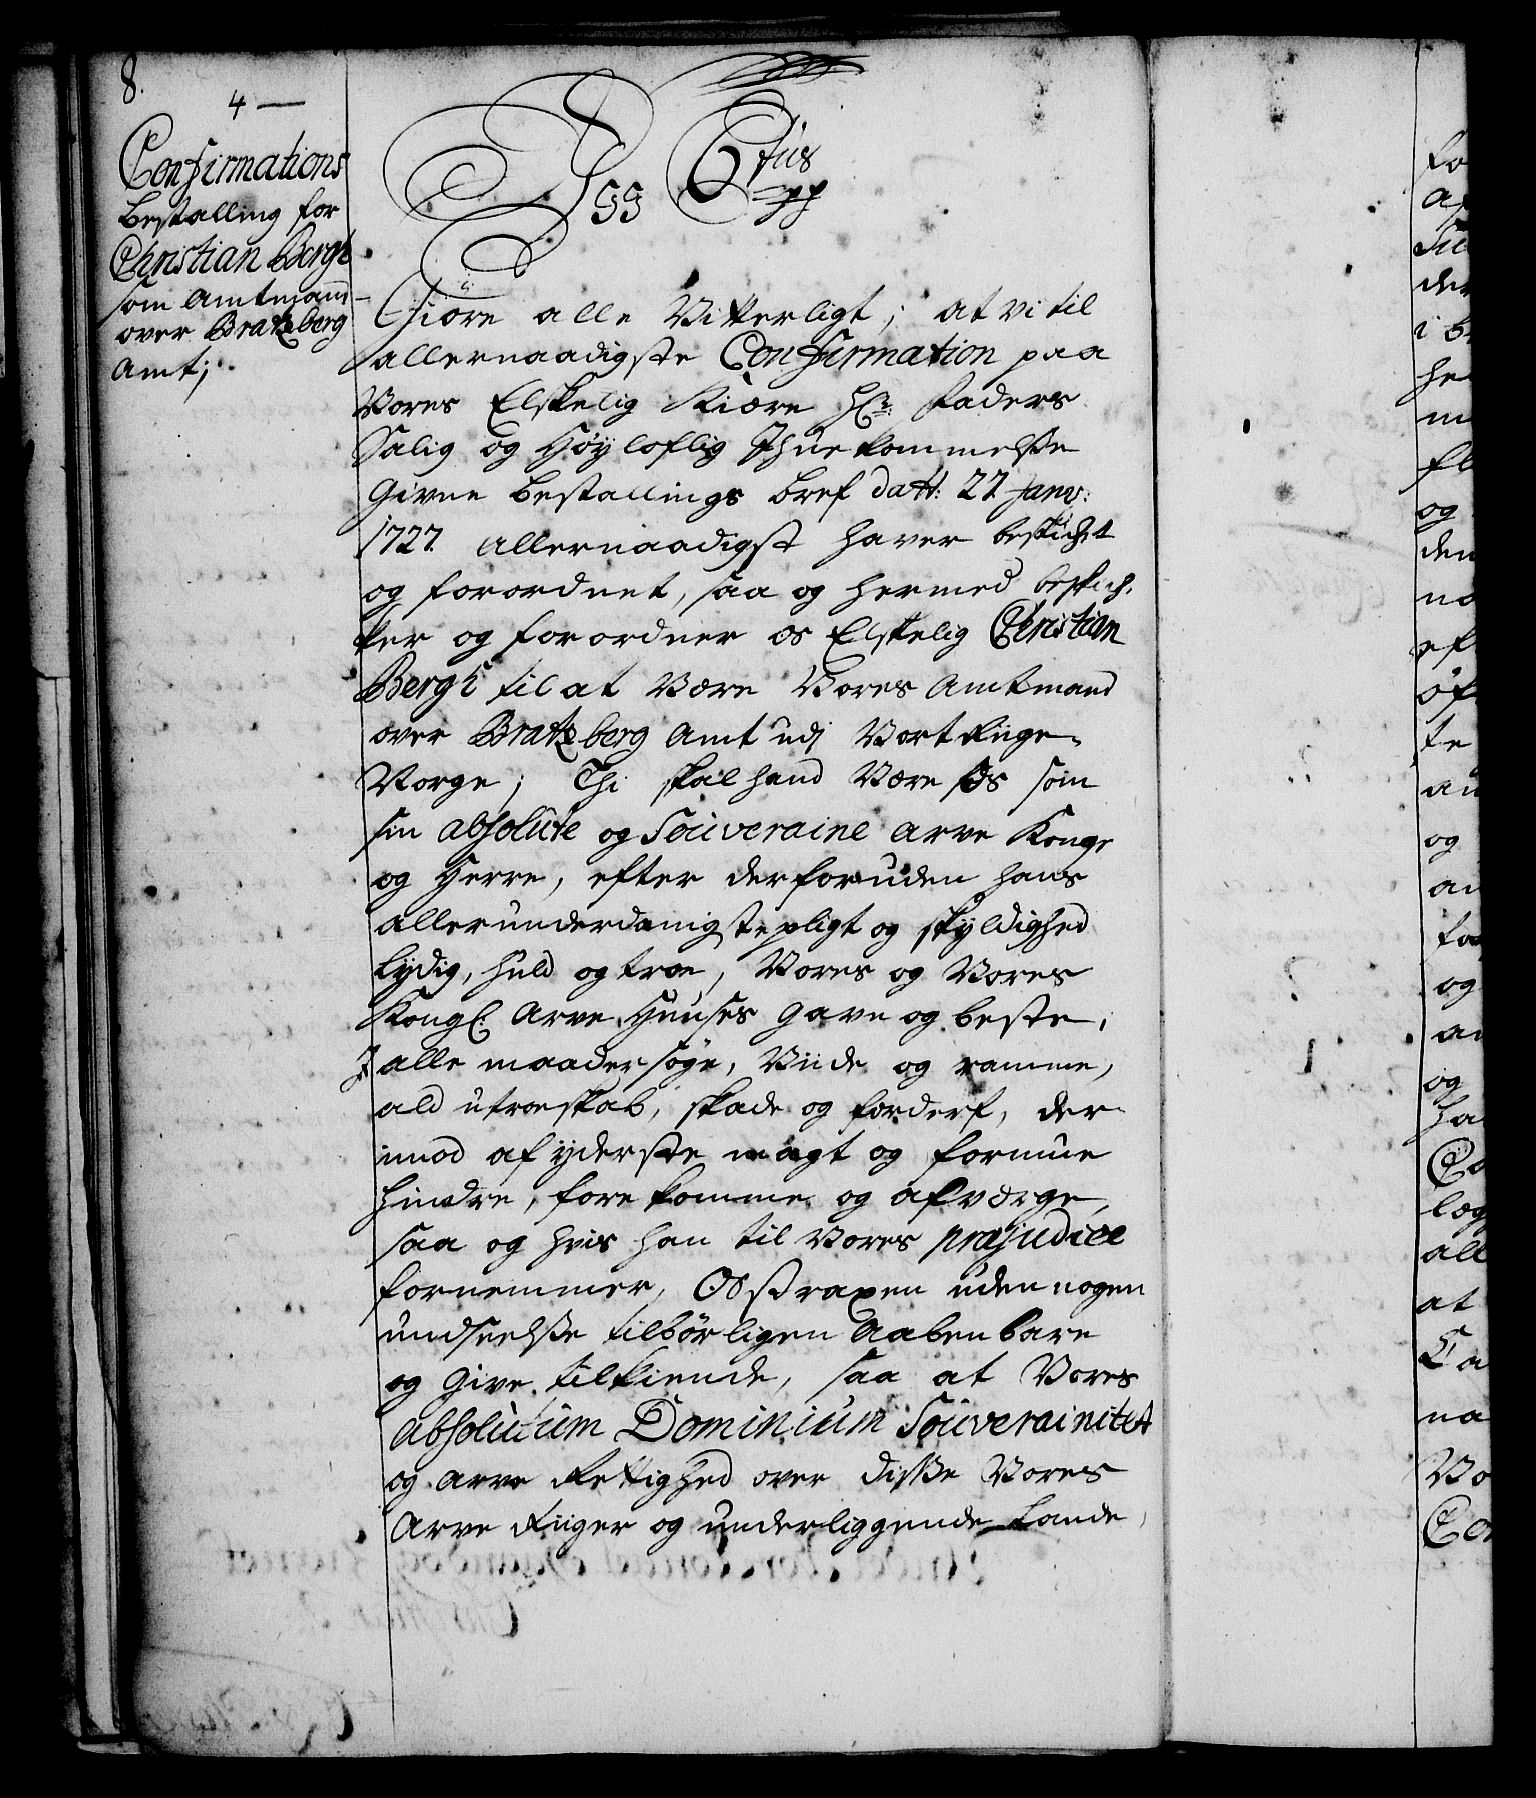 8.
4 —
Confirmations
Bestalling for
Christian Bergh
som Amtmand
over Bratsberg
Amt;
Vii C6tus
pp
Giöre alle Vitterligt; at vi til
allernaadigste Confirmation paa
Vores Elskelig Kiære Hr: Faders
Salig og Høyloflig Ihuekommelse
Givne Bestallings bref dat: 27 Janv:
1727. Allernaadigst haver beskichet
og forordnet, saa og hermed beskich,
ker og forordner os Elskelig Christian
Bergh til at Være Vores Amtmand
over Bratsberg Amt udj Vort Riige
Norge; Thi skal hand Være Os som
sin absolute og Souveraine Arve Konge
og Herre, efter derforuden hans
allerunderdanigste pligt og skyldighed
Lydig, huld og troe, Vores og Vores
Kongl: Arve Huuses gavn og beste,
I alle maader søge, Viide og ramme,
ald utroeskab, skade og forderf, der
imod af yderste magt og formue
hindre, forekomme og afværge,
saa og hvis han til Vores præjudice
fornemmer, Os straxen uden nogen
undseelse tilbörligen Aabenbare
og Give tilkiende, saa at Vores
absolutum Dominium Souverainitet
og Arve Rettighed over disse Vores
Arve Riiger og underliggende Lande,